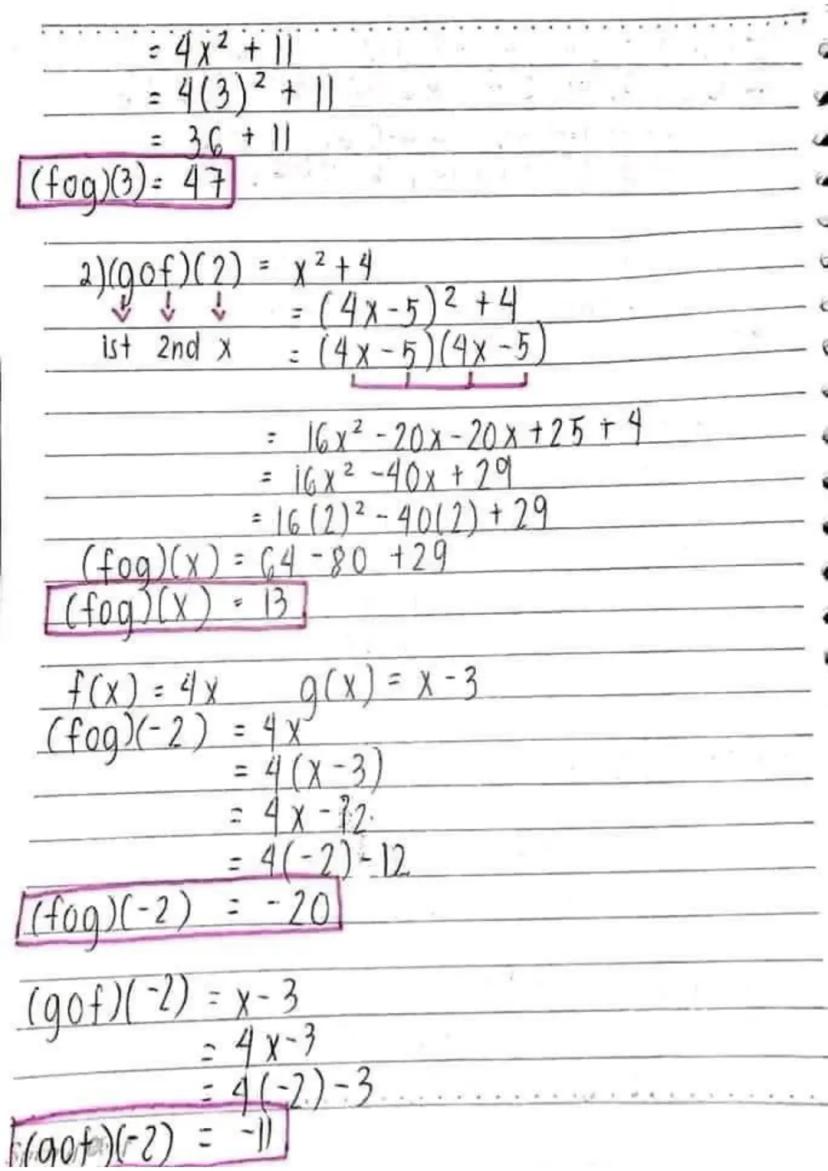 = 4x² + 11
= 4(3)² + 11
= 36 + 11
(fog)(3) = 47
2)(gof)(2) = x² + 4
= (4x - 5)² + 4
ist 2nd x = (4x - 5)(4x - 5)
= 16x² - 20x - 20x + 25 + 4
= 16x² - 40x + 29
= 16(2)² - 40(2) + 29
(fog)(x) = 64 - 80 + 29
(fog)(x) = 13
f(x) = 4x g(x) = x - 3
(fog)(-2) = 4x
= 4(x - 3)
= 4x - 12
= 4(-2) - 12
(fog)(-2) = -20
(gof)(-2) = x - 3
= 4x - 3
= 4(-2) - 3
(gof)(-2) = -11